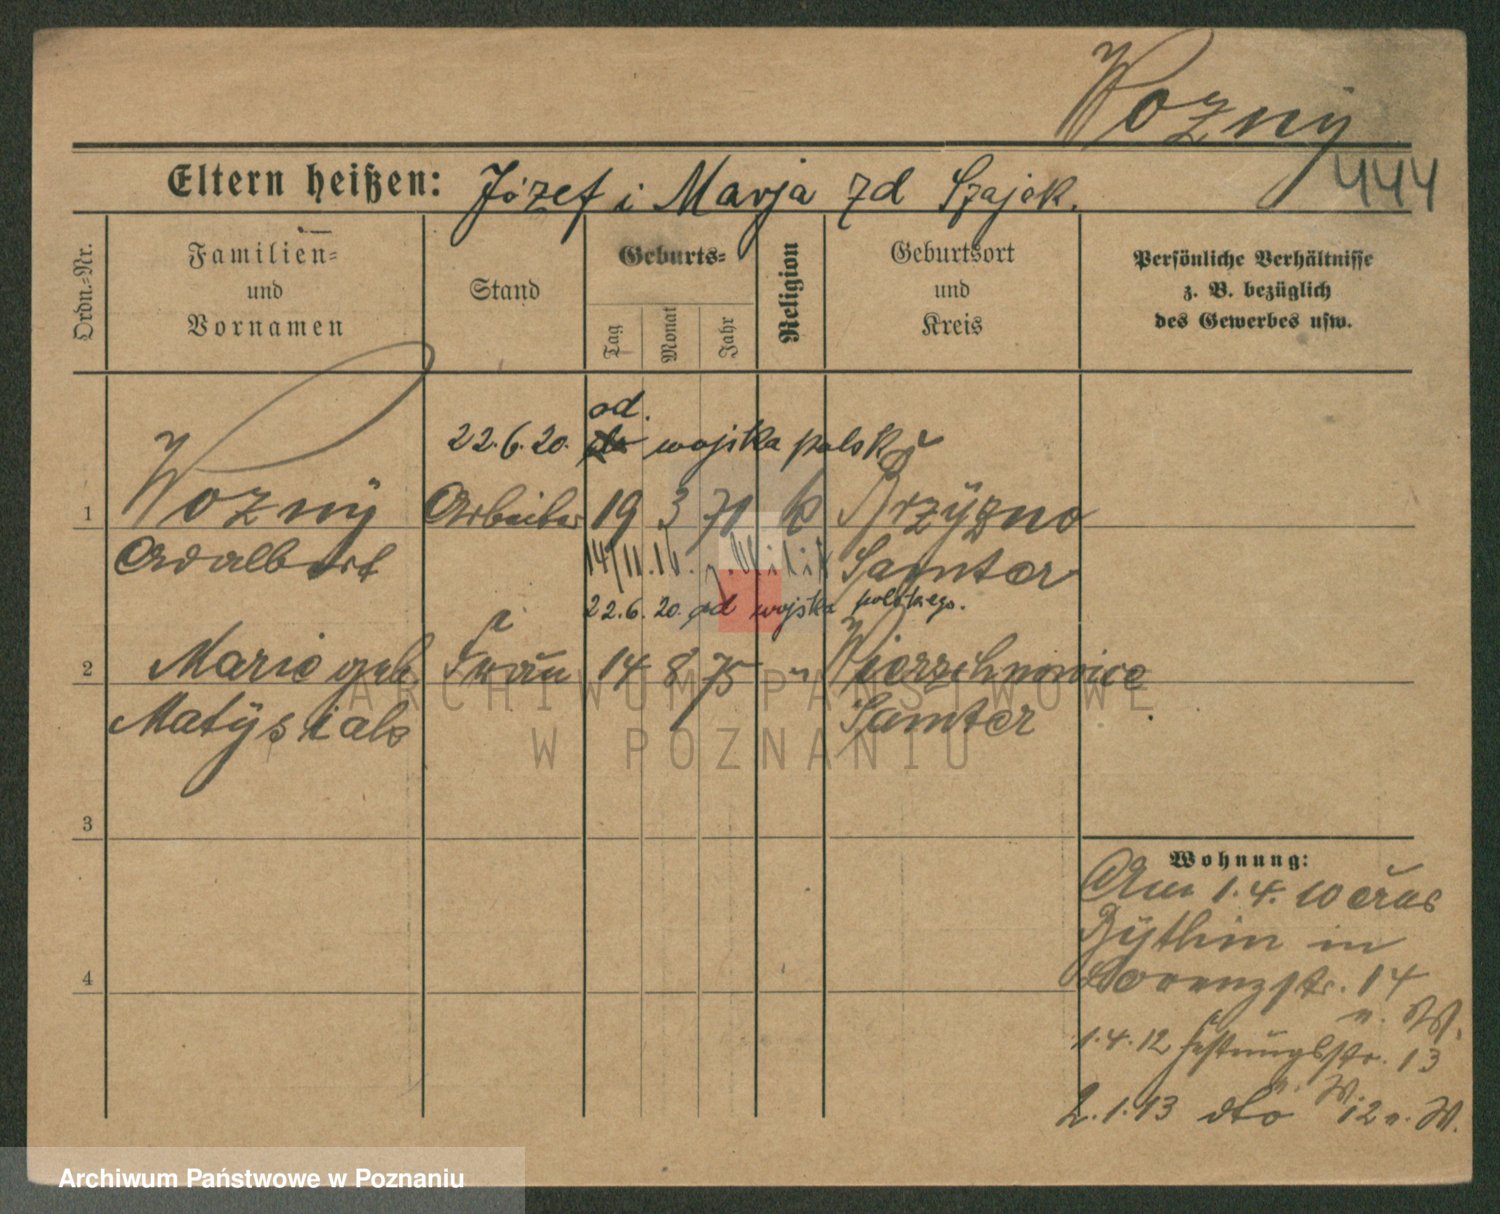 Wozny
444
Eltern heißen: Józef i Marja zd Szajek.
Ordn.-Nr.
Familien-
und
Vornamen
Stand
Geburts-
Tag
Monat
Jahr
Religion
Geburtsort
und
Kreis
Persönliche Verhältnisse
z. B. bezüglich
des Gewerbes usw.
od.
22.6.20. do wojska polsk
1 Woznÿ Arbeiter 19 3 71 k Brzÿzno
Adalbert Samter
14/11.16.
22.6.20. od wojska polskiego.
2 Marie geb Frau 14 8 75 " Wierzchnowice
Matÿsiak Samter
3
4
Wohnung:
Am 1.4.10 aus
Bÿthin in
Lorenzstr. 14
n. W.
1.4.12 Festungsstr. 13
n. W.
2.1.13 dto 12 n. W.
ARCHIWUM PAŃSTWOWE
W POZNANIU
Archiwum Państwowe w Poznaniu